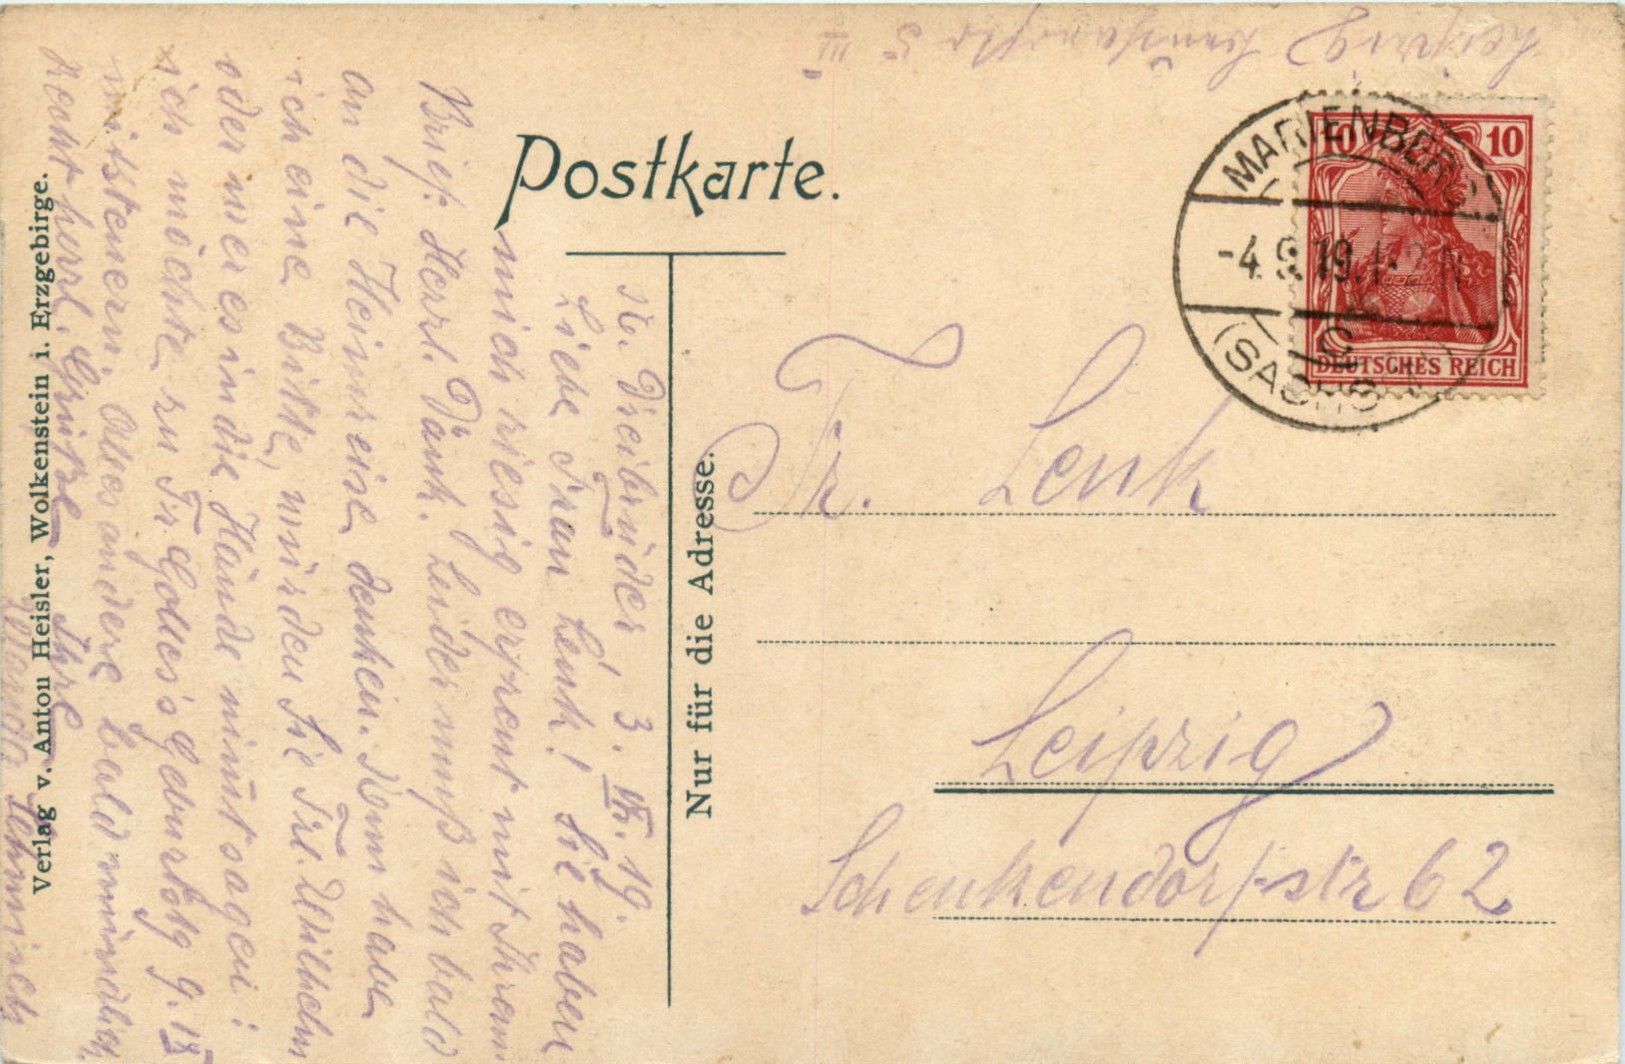 Postkarte.
Nur für die Adresse.
Verlag v. Anton Heisler, Wolkenstein i. Erzgebirge.
MARIENBERG
-4.9.19.1-2N
(SACHSEN)
10 10
DEUTSCHES REICH
Fr. Lenk
Leipzig
Schenkendorfstr 62
Leipzig 5 III
Dreibrüder, 3. 19.
Liebe Frau Lenk! Sie haben
mich riesig erfreut mit Ihrem
Brief. Herzl. Dank. Leider muß ich bald
an die Heimreise denken. Nun habe
ich eine Bitte, würden Sie Frl. Wilhelm
oder wer es in die Hände nimt sagen:
ich möchte zu Fr. Geburtstg 9. 
mitsteuern. Alles andere bald mündlich
Recht herzl. Grüße Ihre